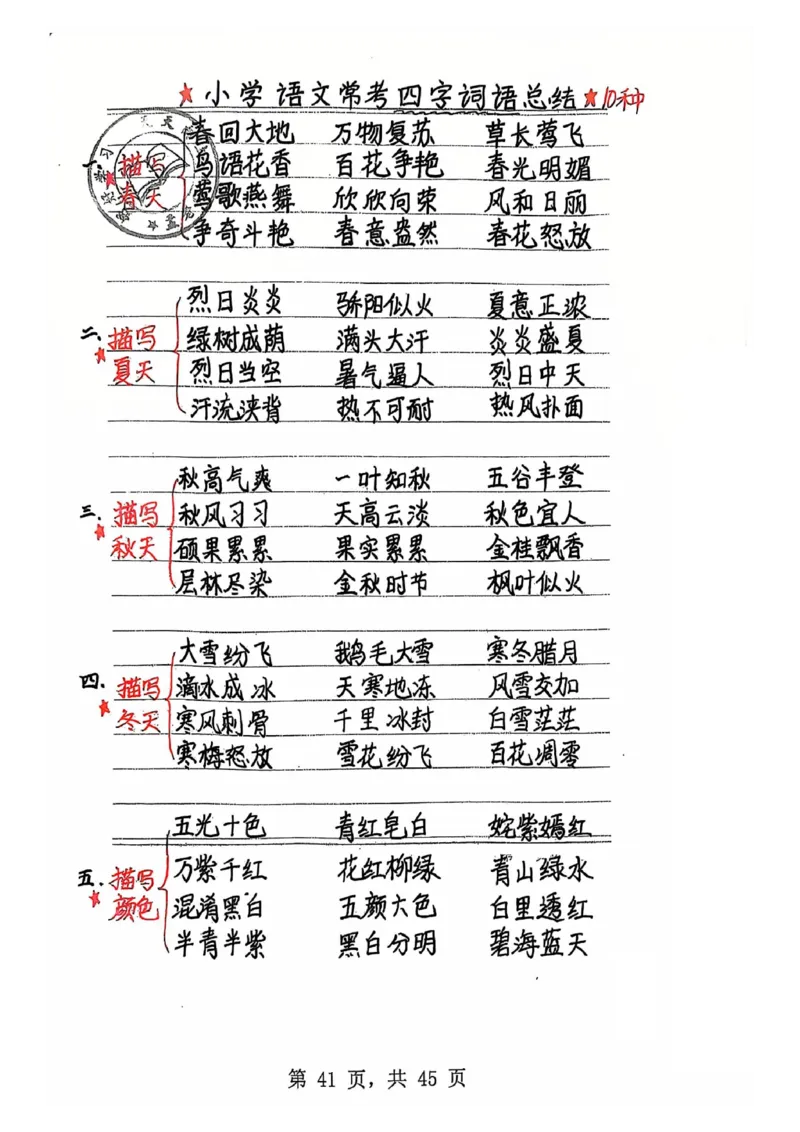 ★小学语文常考四字词语总结★10种
一、描写春天
春回大地 万物复苏 草长莺飞
鸟语花香 百花争艳 春光明媚
莺歌燕舞 欣欣向荣 风和日丽
争奇斗艳 春意盎然 春花怒放
二、描写夏天
烈日炎炎 骄阳似火 夏意正浓
绿树成荫 满头大汗 炎炎盛夏
烈日当空 暑气逼人 烈日中天
汗流浃背 热不可耐 热风扑面
三、描写秋天
秋高气爽 一叶知秋 五谷丰登
秋风习习 天高云淡 秋色宜人
硕果累累 果实累累 金桂飘香
层林尽染 金秋时节 枫叶似火
四、描写冬天
大雪纷飞 鹅毛大雪 寒冬腊月
滴水成冰 天寒地冻 风雪交加
寒风刺骨 千里冰封 白雪茫茫
寒梅怒放 雪花纷飞 百花凋零
五、描写颜色
五光十色 青红皂白 姹紫嫣红
万紫千红 花红柳绿 青山绿水
混淆黑白 五颜大色 白里透红
半青半紫 黑白分明 碧海蓝天
第 41 页，共 45 页